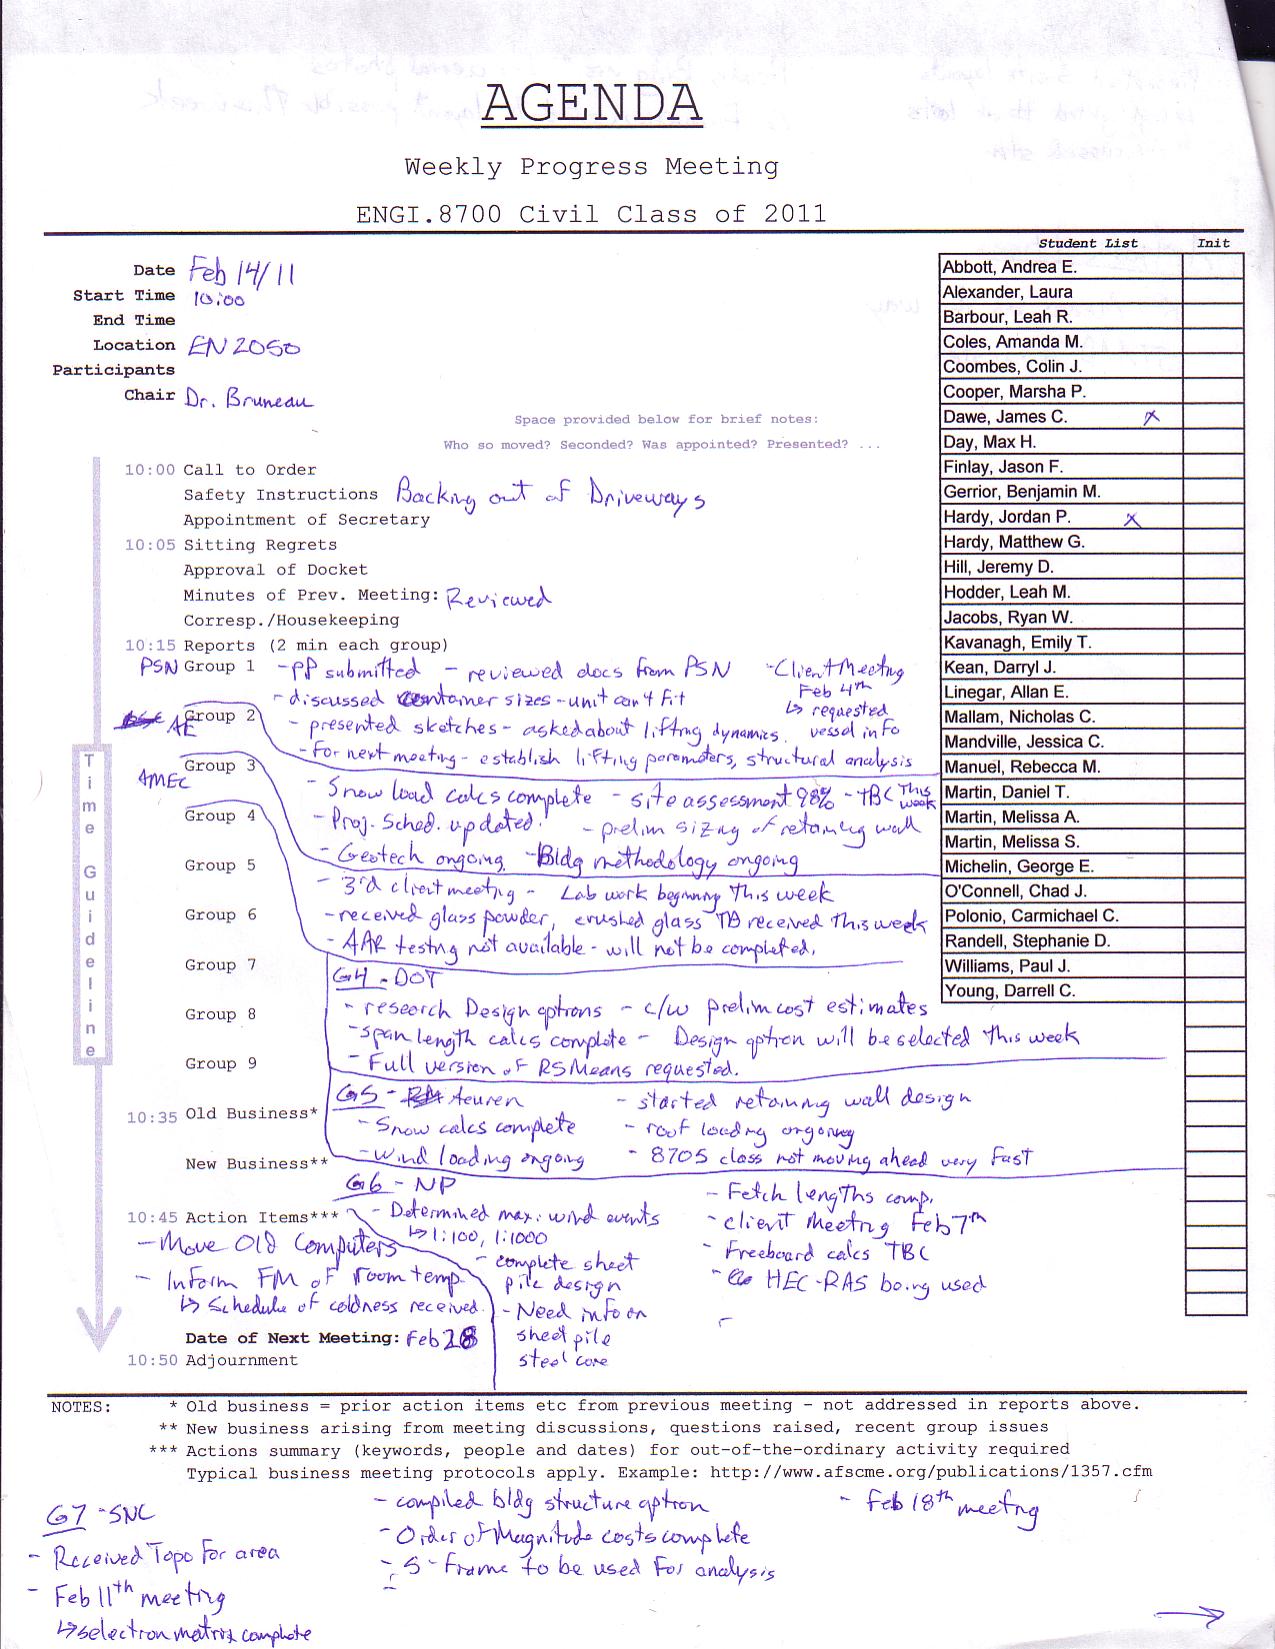 AGENDA
Weekly Progress Meeting
ENGI.8700 Civil Class of 2011
Student List Init
Date Feb 14/11
Start Time 10:00
End Time
Location EN 2050
Participants
Chair Dr. Bruneau
Abbott, Andrea E.
Alexander, Laura
Barbour, Leah R.
Coles, Amanda M.
Coombes, Colin J.
Cooper, Marsha P.
Dawe, James C. x
Day, Max H.
Finlay, Jason F.
Gerrior, Benjamin M.
Hardy, Jordan P. x
Hardy, Matthew G.
Hill, Jeremy D.
Hodder, Leah M.
Jacobs, Ryan W.
Kavanagh, Emily T.
Kean, Darryl J.
Linegar, Allan E.
Mallam, Nicholas C.
Mandville, Jessica C.
Manuel, Rebecca M.
Martin, Daniel T.
Martin, Melissa A.
Martin, Melissa S.
Michelin, George E.
O'Connell, Chad J.
Polonio, Carmichael C.
Randell, Stephanie D.
Williams, Paul J.
Young, Darrell C.
Space provided below for brief notes:
Who so moved? Seconded? Was appointed? Presented? ...
Time Guideline
10:00 Call to Order
Safety Instructions Backing out of Driveways
Appointment of Secretary
10:05 Sitting Regrets
Approval of Docket
Minutes of Prev. Meeting: Reviewed
Corresp./Housekeeping
10:15 Reports (2 min each group)
PSN Group 1 - PP submitted - reviewed docs from PSN
- discussed container sizes - unit can't fit
- Client Meeting
Feb 4th
↳ requested
vessel info
- presented sketches - asked about lifting dynamics.
- For next meeting - establish lifting parameters, structural analysis
AE Group 2
- Snow load calcs complete - site assessment 98% - TBC This week
- Proj. Sched. updated. - prelim sizing of retaining wall
- Geotech ongoing - Bldg methodology ongoing
AMEC Group 3
- 3rd client meeting - Lab work beginning this week
- received glass powder, crushed glass TB received this week
- AAR testing not available - will not be completed.
Group 4
Group 5
Group 6
Group 7
Group 8
Group 9
G4 - DOT
- research Design options - c/w prelim cost estimates
- span length calcs complete - Design option will be selected this week
- Full version of RSMeans requested.
G5 - Teuren
- Snow calcs complete
- wind loading ongoing
- started retaining wall design
- roof loading ongoing
- 8705 class not moving ahead very fast
10:35 Old Business*
New Business**
G6 - NP
- Determined max. wind events
↳ 1:100, 1:1000
- complete sheet
pile design
- Need info on
sheet pile
steel core
- Fetch lengths comp.
- client meeting Feb 7th
- Freeboard calcs TBC
- HEC-RAS being used
10:45 Action Items***
- Move Old Computers
- Inform FM of room temp.
↳ Schedule of coldness received.
Date of Next Meeting: Feb 28
10:50 Adjournment
NOTES: * Old business = prior action items etc from previous meeting - not addressed in reports above.
** New business arising from meeting discussions, questions raised, recent group issues
*** Actions summary (keywords, people and dates) for out-of-the-ordinary activity required
Typical business meeting protocols apply. Example: http://www.afscme.org/publications/1357.cfm
G7 - SNC
- Received Topo for area
- Feb 11th meeting
↳ selection matrix complete
- compiled bldg structure option
- Order of Magnitude costs complete
- S-Frame to be used for analysis
- Feb 18th meeting